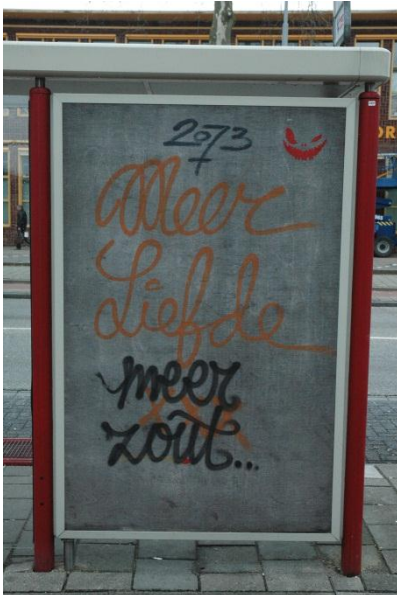 2073
Meer
Liefde
meer
zout...